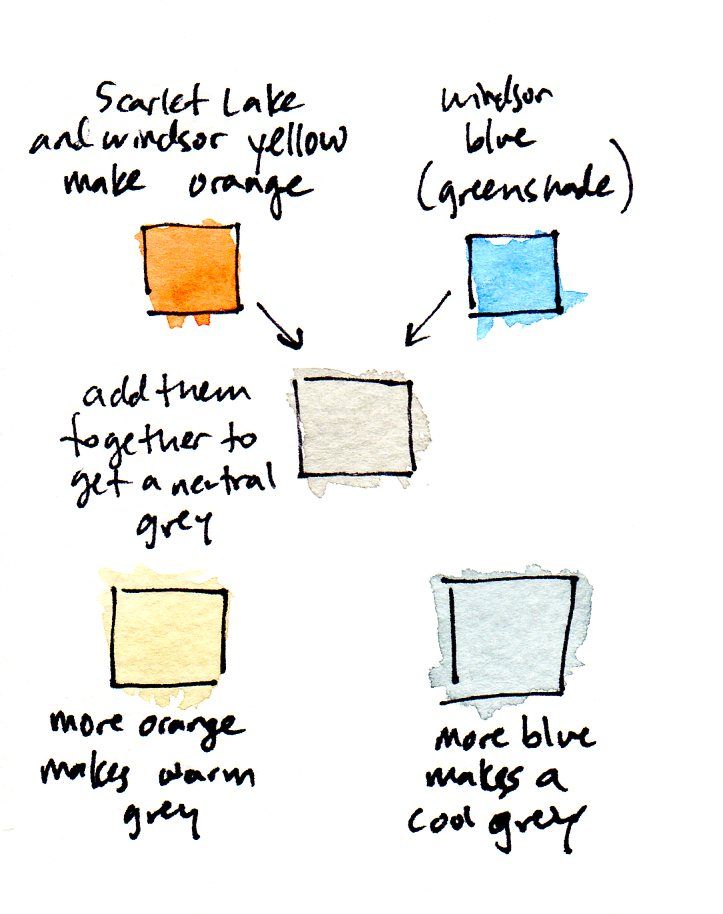 Scarlet Lake
and windsor yellow
make orange
windsor
blue
(greenshade)
add them
together to
get a neutral
grey
more orange
makes warm
grey
more blue
makes a
cool grey